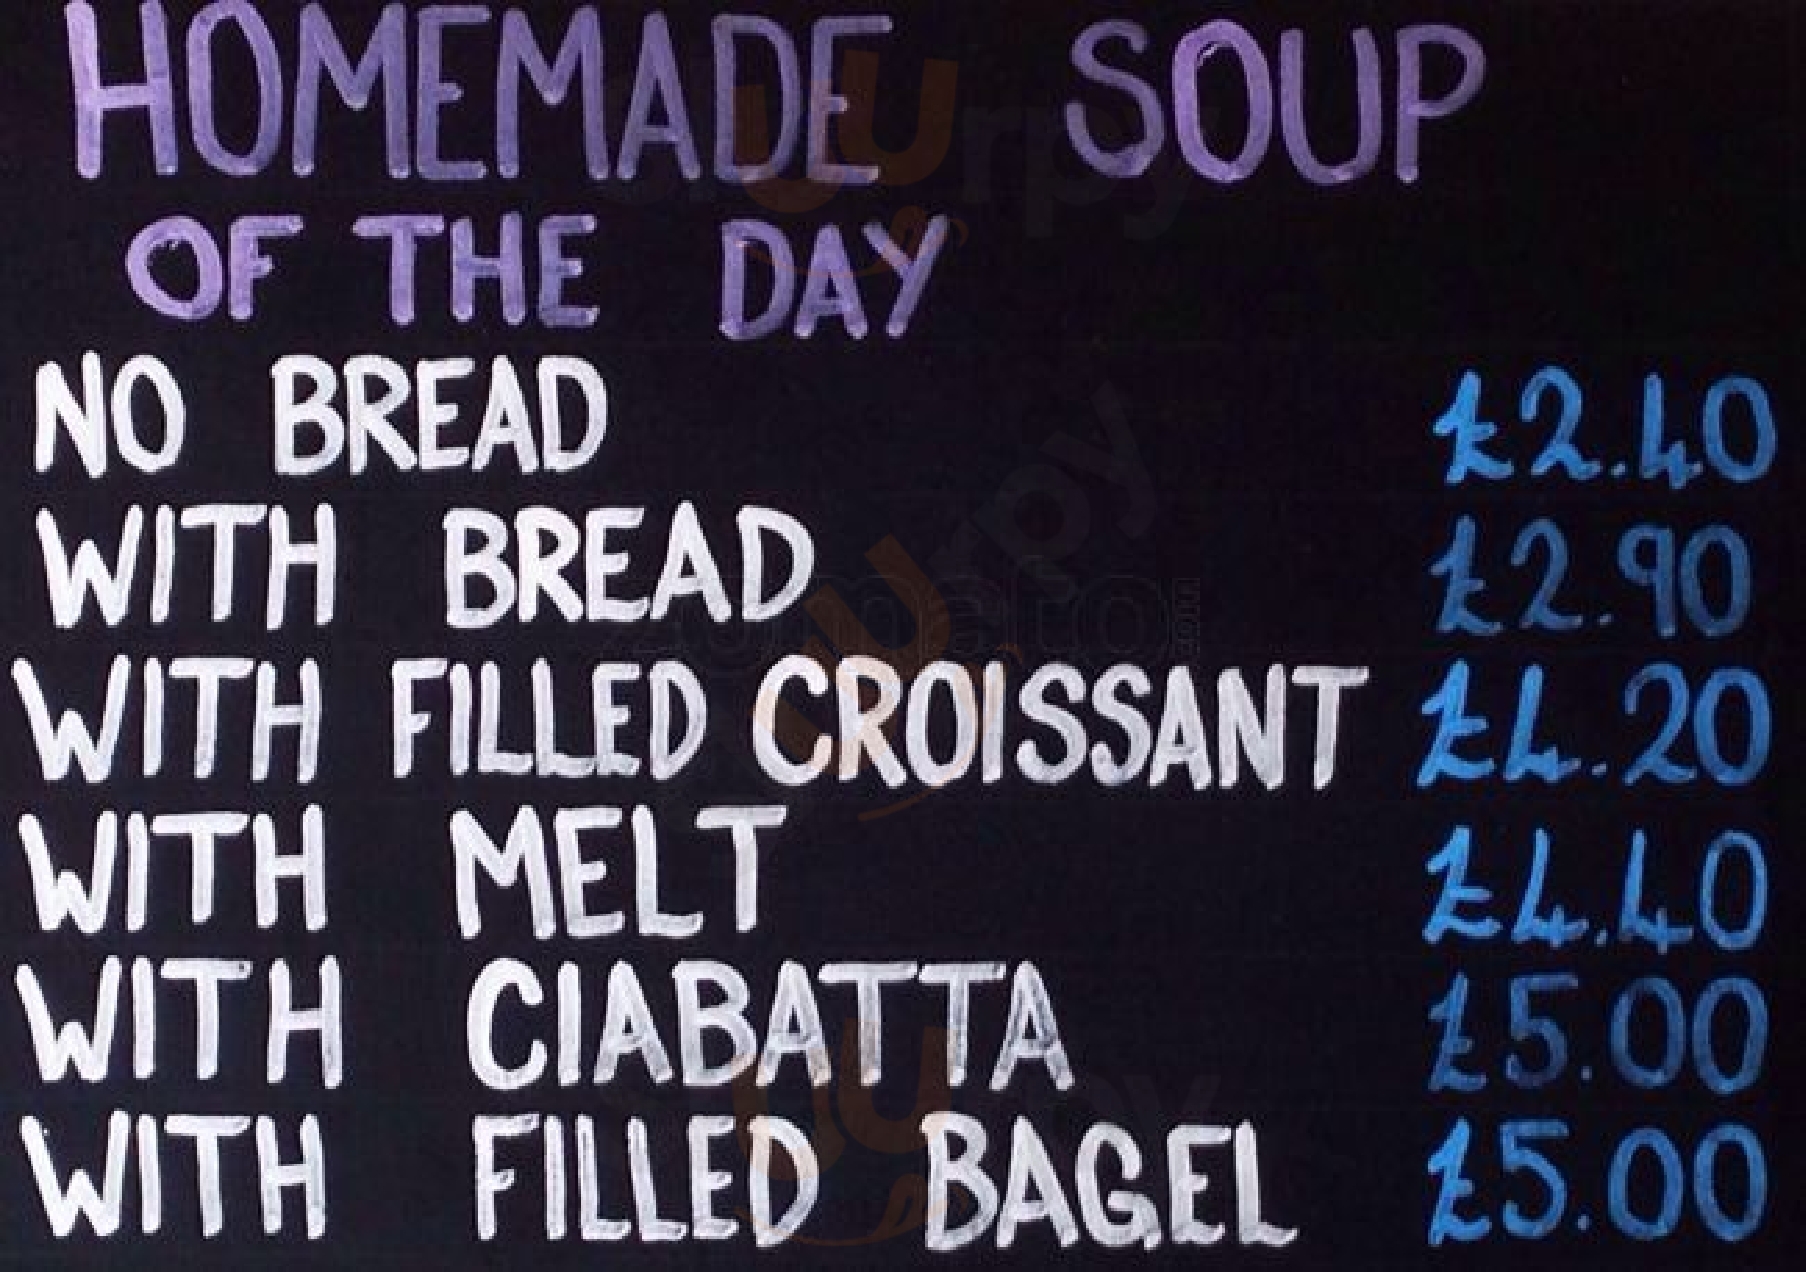 HOMEMADE SOUP
OF THE DAY
NO BREAD £2.40
WITH BREAD £2.90
WITH FILLED CROISSANT £4.20
WITH MELT £4.40
WITH CIABATTA £5.00
WITH FILLED BAGEL £5.00